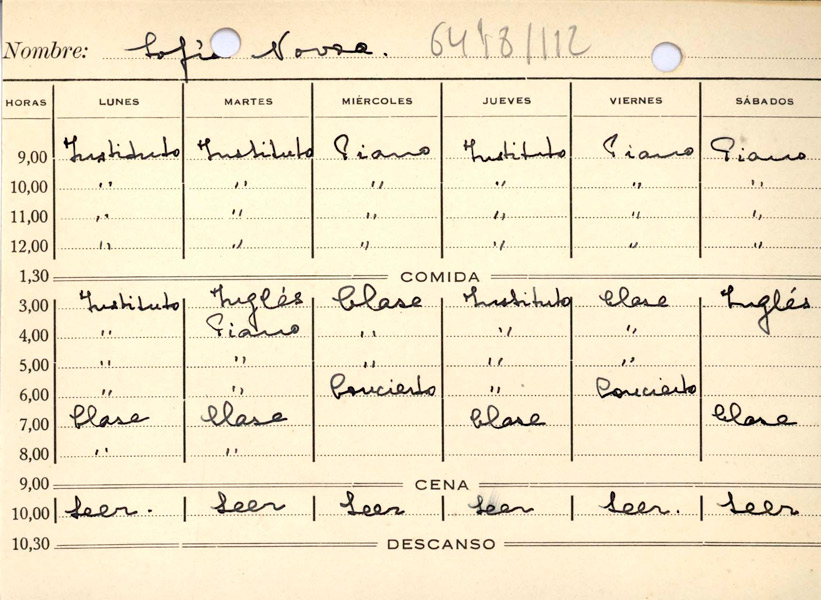 Nombre: Sofía Novoa. 6418/112
HORAS LUNES MARTES MIÉRCOLES JUEVES VIERNES SÁBADOS
9,00 Instituto Instituto Piano Instituto Piano Piano
10,00 " " " " " "
11,00 " " " " " "
12,00 " " " " " "
1,30 COMIDA
3,00 Instituto Inglés Clase Instituto Clase Inglés
4,00 " Piano " " "
5,00 " " " " "
6,00 " " Concierto " Concierto
7,00 Clase Clase Clase Clase
8,00 " "
9,00 CENA
10,00 Leer. Leer Leer Leer Leer. Leer
10,30 DESCANSO